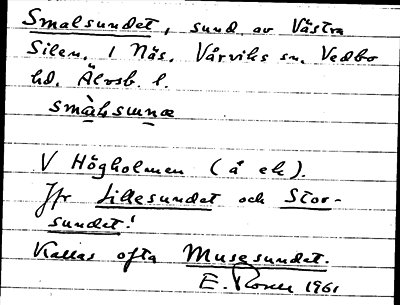 Smalsundet, sund av Västra
Silen. I Näs. Vårviks sn. Vedbo
hd. Älvsb. l.
V Högholmen (å ek).
Jfr Lillesundet och Stor-
sundet!
Kallas ofta Musesundet.
E. 1961